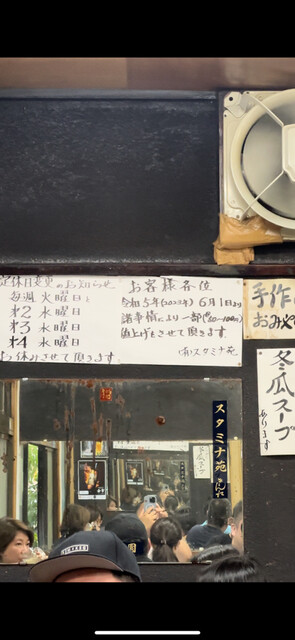 定休日変更のお知らせ
毎週火曜日と
才2水曜日
才3水曜日
才4水曜日
お休みさせて頂きます。
お客様各位
令和5年(2023年)6月1日より
諸事情により一部
値上げをさせて頂きます。
(有)スタミナ苑
手作
おみや
冬瓜スープ
あります
スタミナ苑